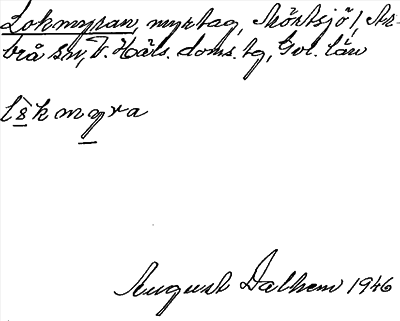 Lokmyran, myrtag, Mörtsjö l, Ar-
brå sn, V. Häls. doms. tg, Gvl. län
lskmyra
August Dalhem 1946